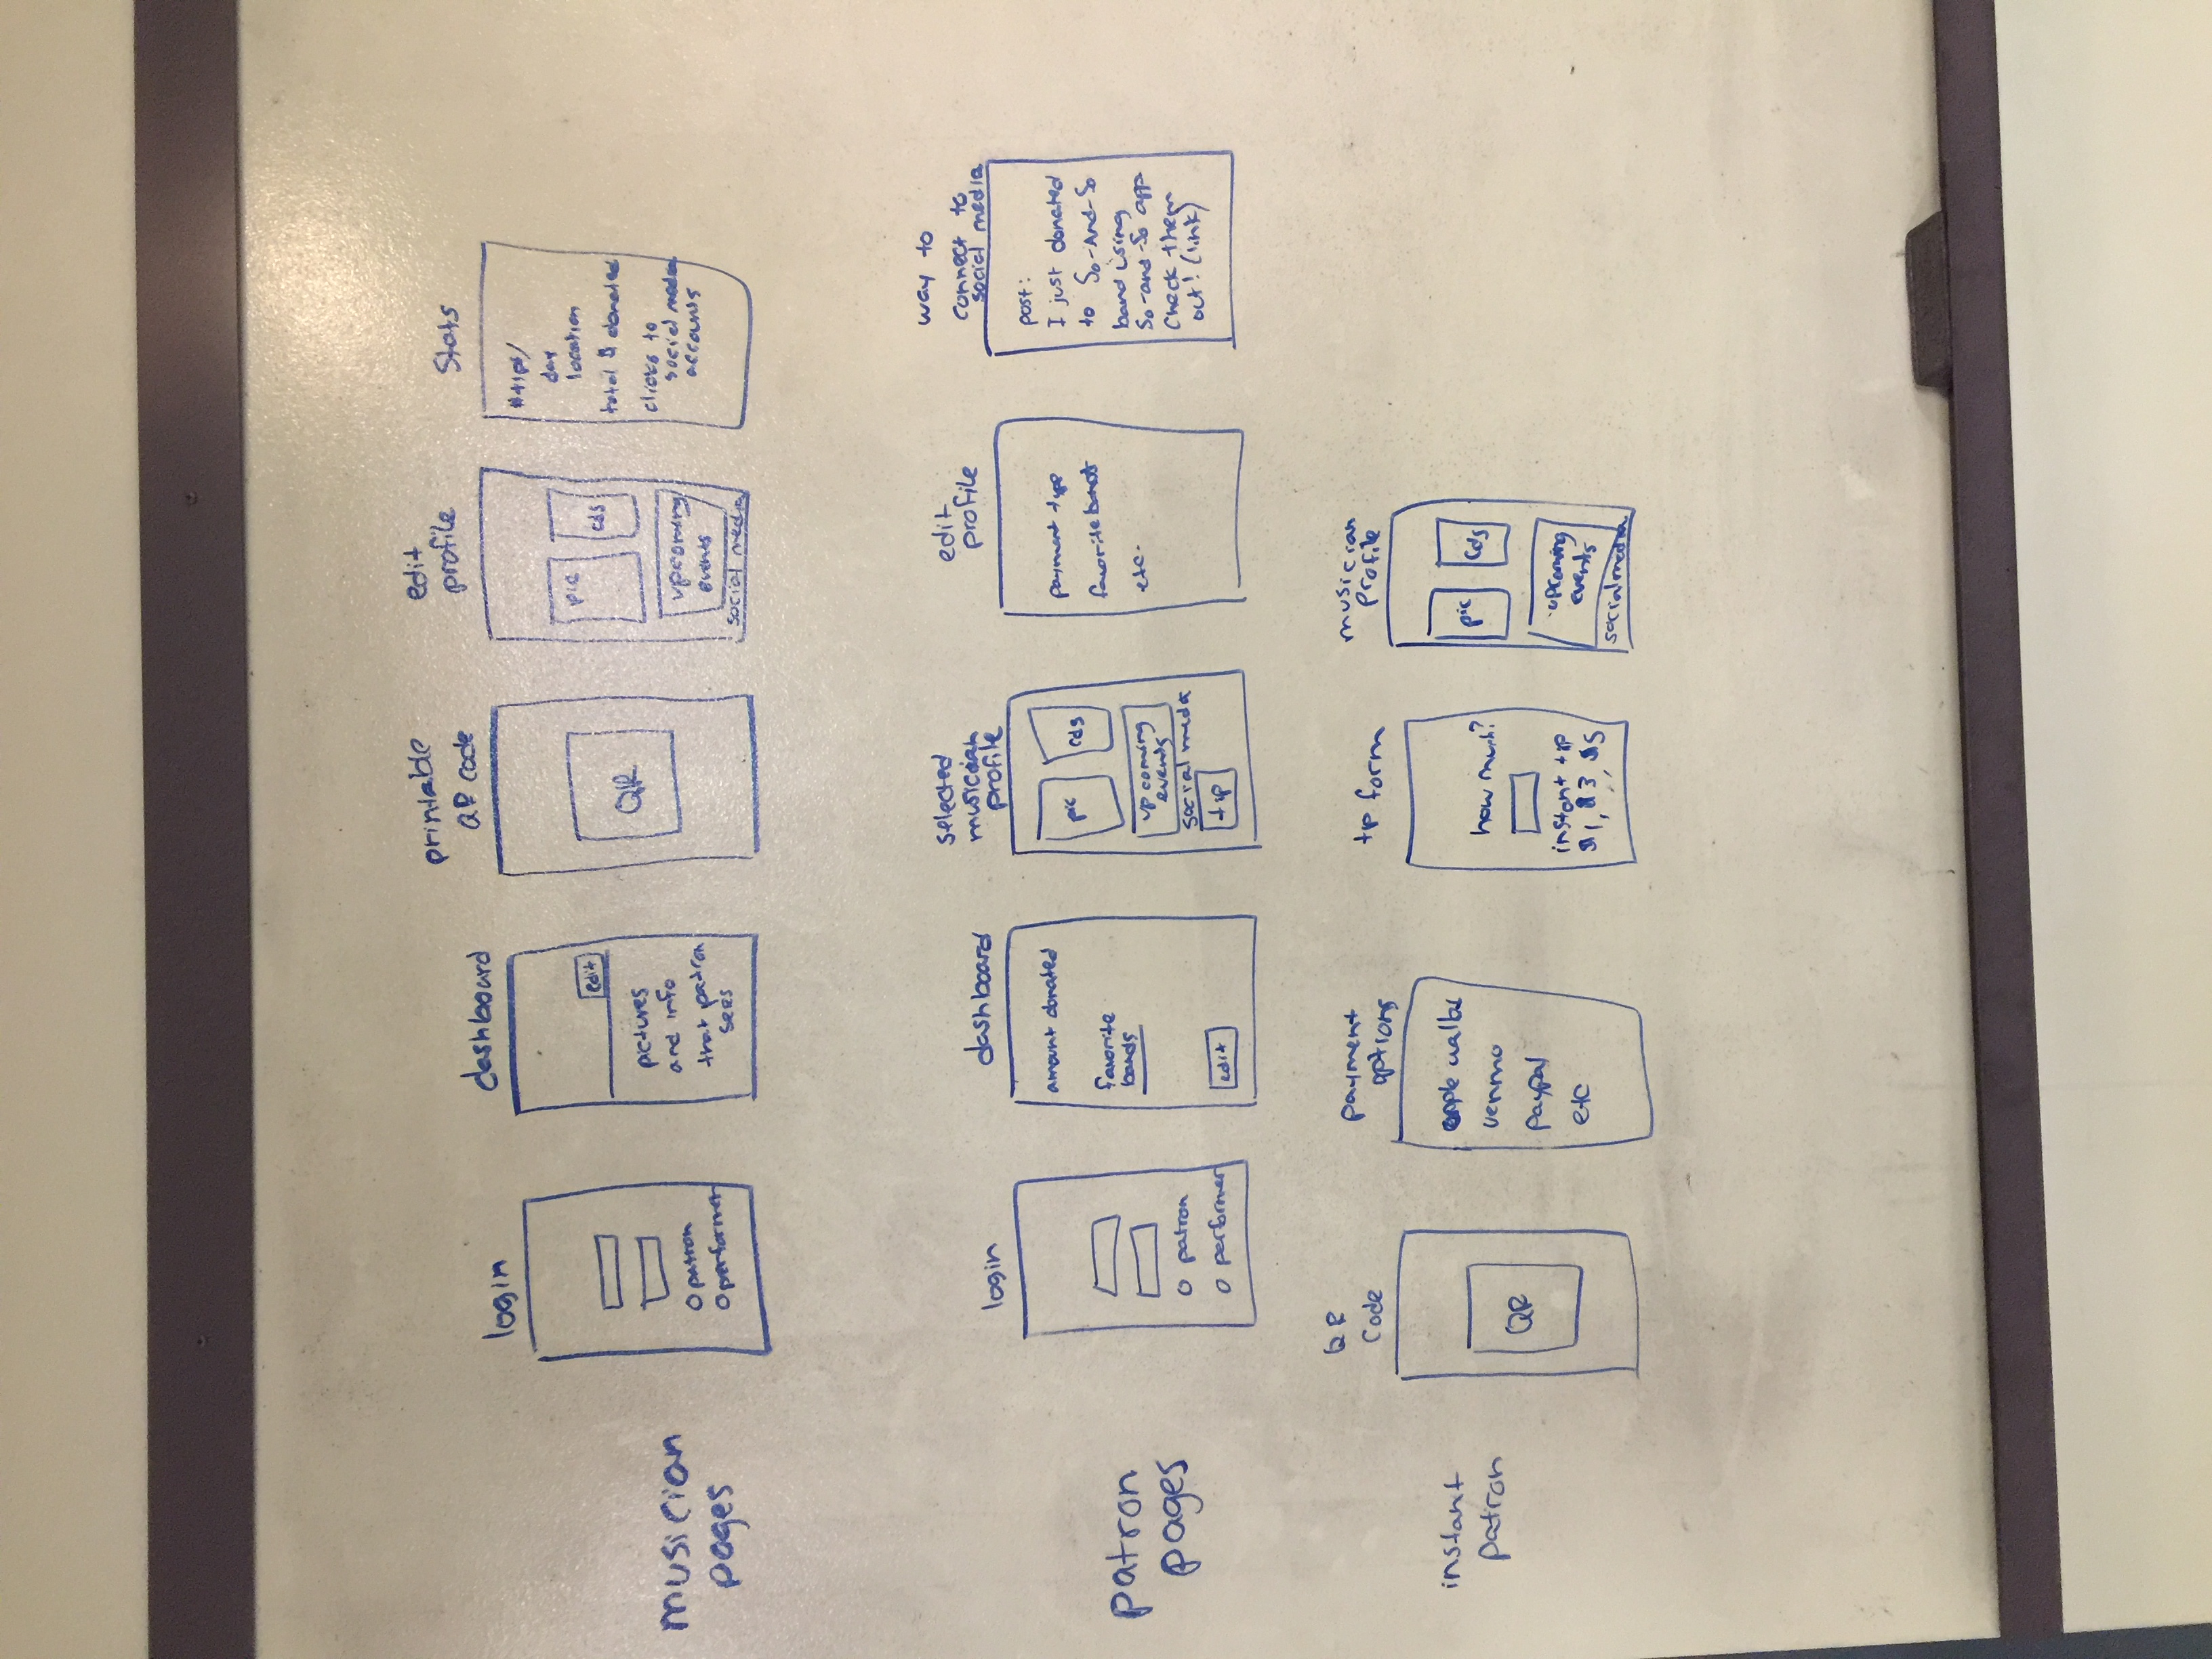 musician
pages
login
O patron
O performer
dashboard
edit
pictures
and info
that patron
sees
printable
QR code
QR
edit
profile
pic
cds
upcoming
events
social media
Stats
day
location
total $ donated
clicks to
social media
accounts
patron
pages
login
O patron
O performer
dashboard
amount donated
favorite
bands
edit
selected
musician
profile
pic
cds
upcoming
events
social media
tip
edit
profile
payment type
favorite bands
etc.
way to
connect to
social media
post:
I just donated
to So-And-So
band using
So-and-So app
Check them
out! (link)
instant
patron
QR
Code
QR
payment
options
apple wallet
venmo
paypal
etc
tip form
how much?
instant tip
$1, $3, $5
musician
profile
pic
cds
upcoming
events
social media